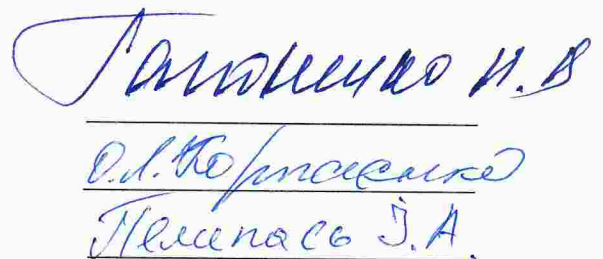 Гапоненко Н. В
О.Л. Корпаченко
Пелипась І.А.